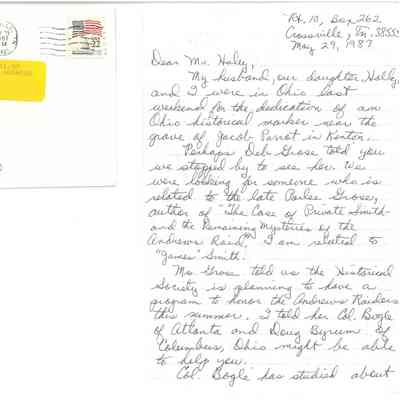 Rt. 10, Box 262
Crossville, Tn. 38555
May 29, 1987
Dear Ms. Haley,
My husband, our daughter, Holly,
and I were in Ohio last
weekend for the dedication of an
Ohio historical marker near the
grave of Jacob Parrot in Kenton.
Perhaps Deb Grose told you
we stopped by to see her. We
were looking for someone who is
related to the late Parlee Grose,
author of "The Case of Private Smith-
and the Remaining Mysteries of the
Andrews Raid." I am related to
"James" Smith.
Ms. Grose told us the Historical
Society is planning to have a
program to honor the Andrews Raiders
this summer. I told her Col. Bogle
of Atlanta and Doug Byrum of
Columbus, Ohio might be able
to help you.
Col. Bogle has studied about